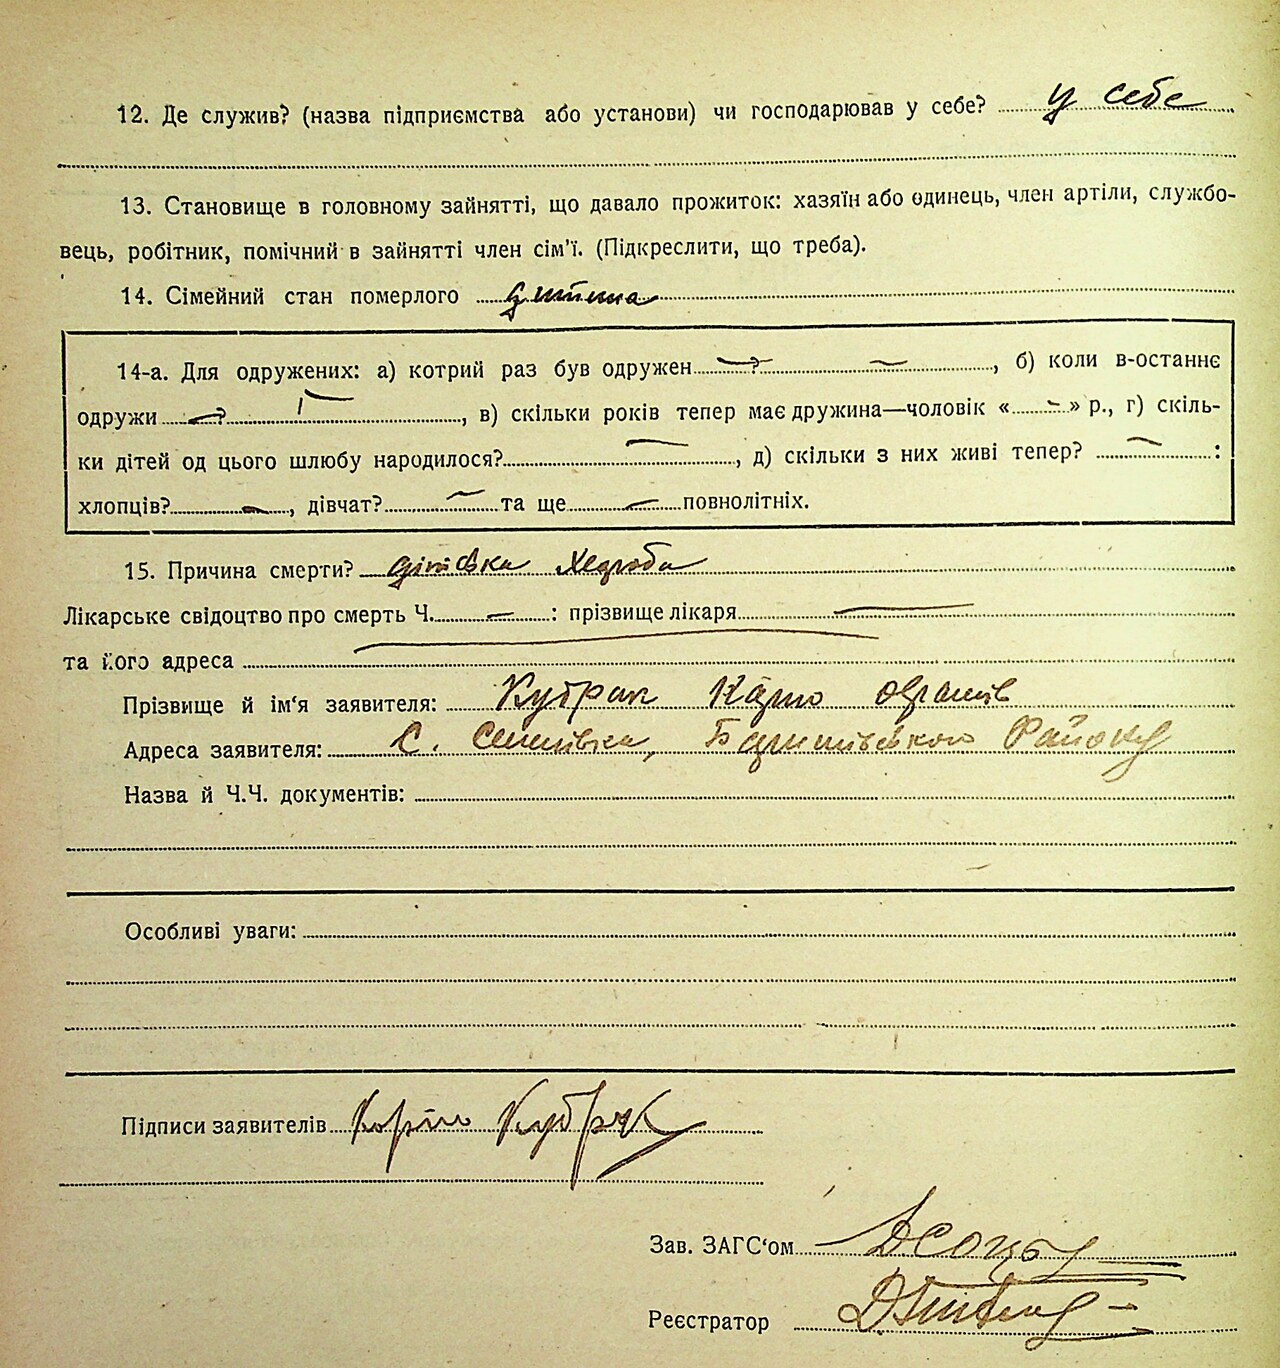 12. Де служив? (назва підприємства або установи) чи господарював у себе? у себе
13. Становище в головному зайнятті, що давало прожиток: хазяїн або одинець, член артіли, службо-
вець, робітник, помічний в зайнятті член сім'ї. (Підкреслити, що треба).
14. Сімейний стан померлого дитина
14-а. Для одружених: а) котрий раз був одружен —? —, б) коли в-останнє
одружи —? —, в) скільки років тепер має дружина—чоловік «—» р., г) скіль-
ки дітей од цього шлюбу народилося? —, д) скільки з них живі тепер? — :
хлопців? —, дівчат? — та ще — повнолітніх.
15. Причина смерти? дітська хороба
Лікарське свідоцтво про смерть Ч. — : прізвище лікаря —
та його адреса —
Прізвище й ім'я заявителя: Кубрак
Адреса заявителя: С. Району
Назва й Ч.Ч. документів:
Особливі уваги:
Підписи заявителів Кубрак
Зав. ЗАГС'ом
Реєстратор